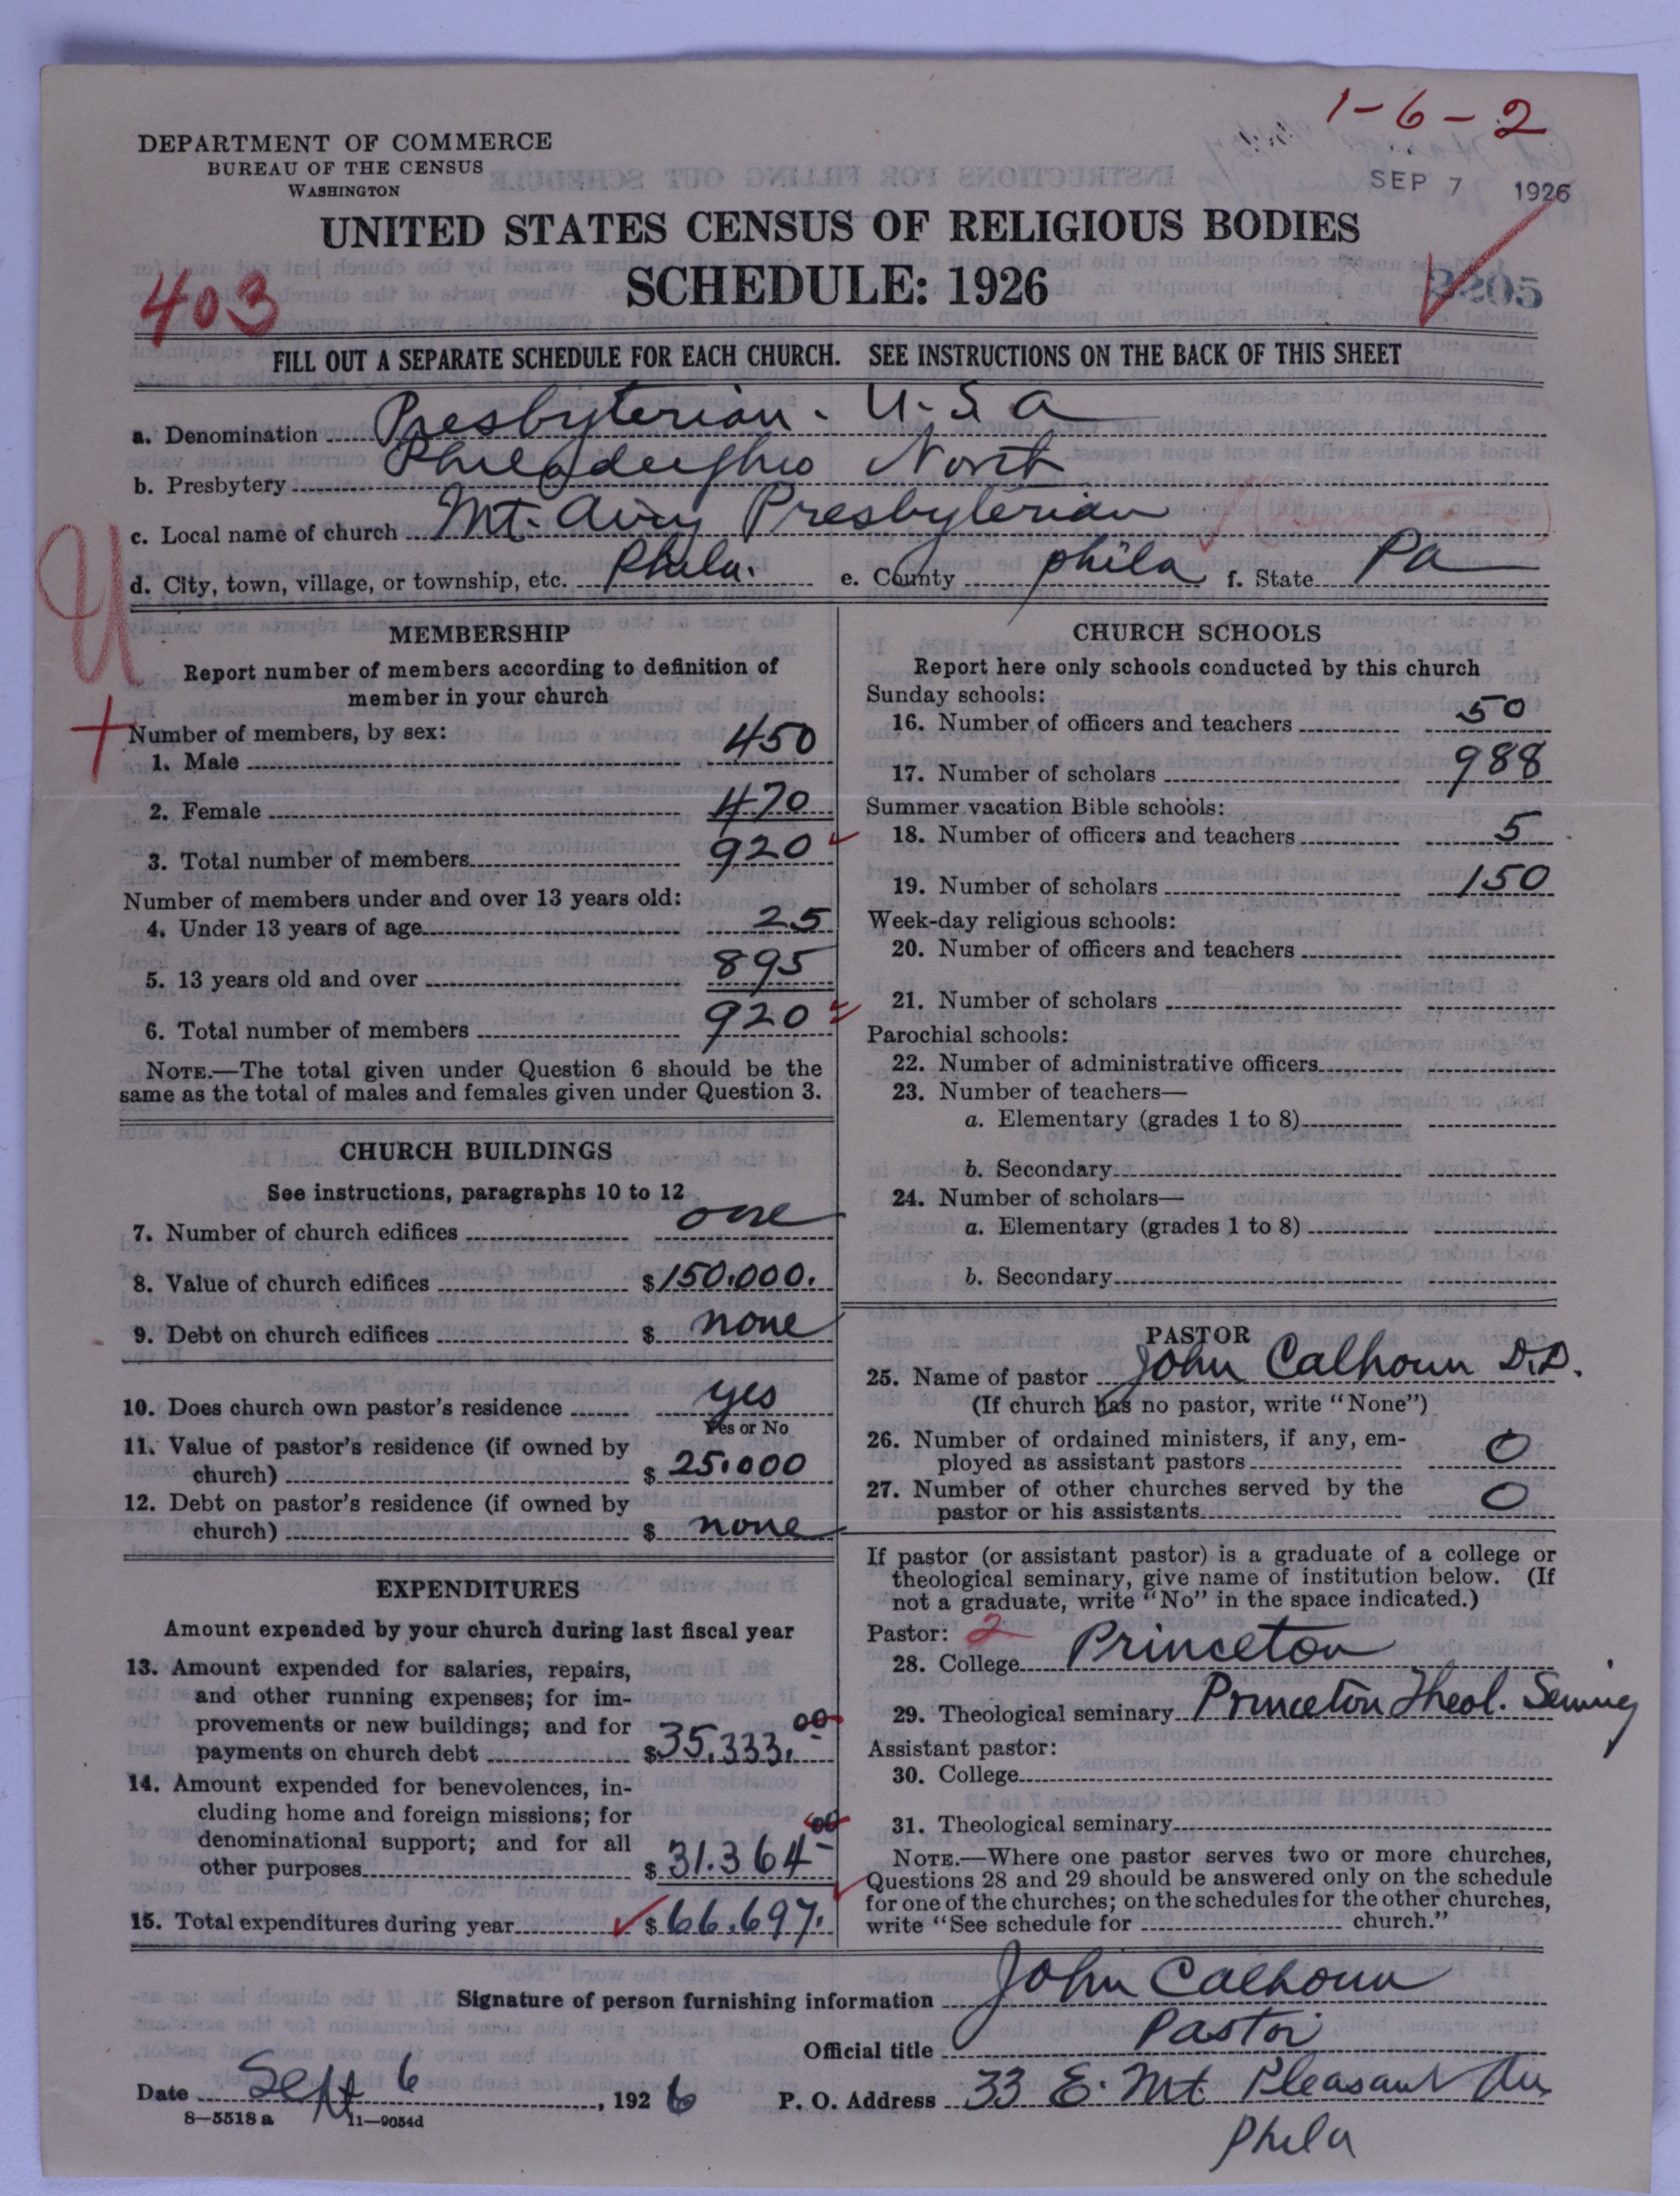 1-6-2
DEPARTMENT OF COMMERCE
BUREAU OF THE CENSUS
WASHINGTON
SEP 7 1926
UNITED STATES CENSUS OF RELIGIOUS BODIES
SCHEDULE: 1926
403
FILL OUT A SEPARATE SCHEDULE FOR EACH CHURCH. SEE INSTRUCTIONS ON THE BACK OF THIS SHEET
a. Denomination Presbyterian. U.S.A
b. Presbytery Philadelphia North
c. Local name of church Mt. Airy Presbyterian
d. City, town, village, or township, etc. Phila. e. County Phila f. State Pa
MEMBERSHIP
Report number of members according to definition of
member in your church
Number of members, by sex:
1. Male 450
2. Female 470
3. Total number of members 920
Number of members under and over 13 years old:
4. Under 13 years of age 25
5. 13 years old and over 895
6. Total number of members 920
NOTE.—The total given under Question 6 should be the
same as the total of males and females given under Question 3.
CHURCH BUILDINGS
See instructions, paragraphs 10 to 12
7. Number of church edifices one
8. Value of church edifices $150.000.
9. Debt on church edifices $ none
10. Does church own pastor's residence yes
Yes or No
11. Value of pastor's residence (if owned by
church) $ 25.000
12. Debt on pastor's residence (if owned by
church) $ none
EXPENDITURES
Amount expended by your church during last fiscal year
13. Amount expended for salaries, repairs,
and other running expenses; for im-
provements or new buildings; and for
payments on church debt $35.333.00
14. Amount expended for benevolences, in-
cluding home and foreign missions; for
denominational support; and for all
other purposes $ 31.364 00
15. Total expenditures during year $66.697.
CHURCH SCHOOLS
Report here only schools conducted by this church
Sunday schools:
16. Number of officers and teachers 50
17. Number of scholars 988
Summer vacation Bible schools:
18. Number of officers and teachers 5
19. Number of scholars 150
Week-day religious schools:
20. Number of officers and teachers
21. Number of scholars
Parochial schools:
22. Number of administrative officers
23. Number of teachers—
a. Elementary (grades 1 to 8)
b. Secondary
24. Number of scholars—
a. Elementary (grades 1 to 8)
b. Secondary
PASTOR
25. Name of pastor John Calhoun D.D.
(If church has no pastor, write "None")
26. Number of ordained ministers, if any, em-
ployed as assistant pastors 0
27. Number of other churches served by the
pastor or his assistants 0
If pastor (or assistant pastor) is a graduate of a college or
theological seminary, give name of institution below. (If
not a graduate, write "No" in the space indicated.)
Pastor: 2
28. College Princeton
29. Theological seminary Princeton Theol.
Assistant pastor:
30. College
31. Theological seminary
NOTE.—Where one pastor serves two or more churches,
Questions 28 and 29 should be answered only on the schedule
for one of the churches; on the schedules for the other churches,
write "See schedule for church."
Signature of person furnishing information John Calhoun
Official title Pastor
Date Sept 6, 1926 P. O. Address 33 E. Mt Pleasant Av
8—5518 a 11—9054d
Phila